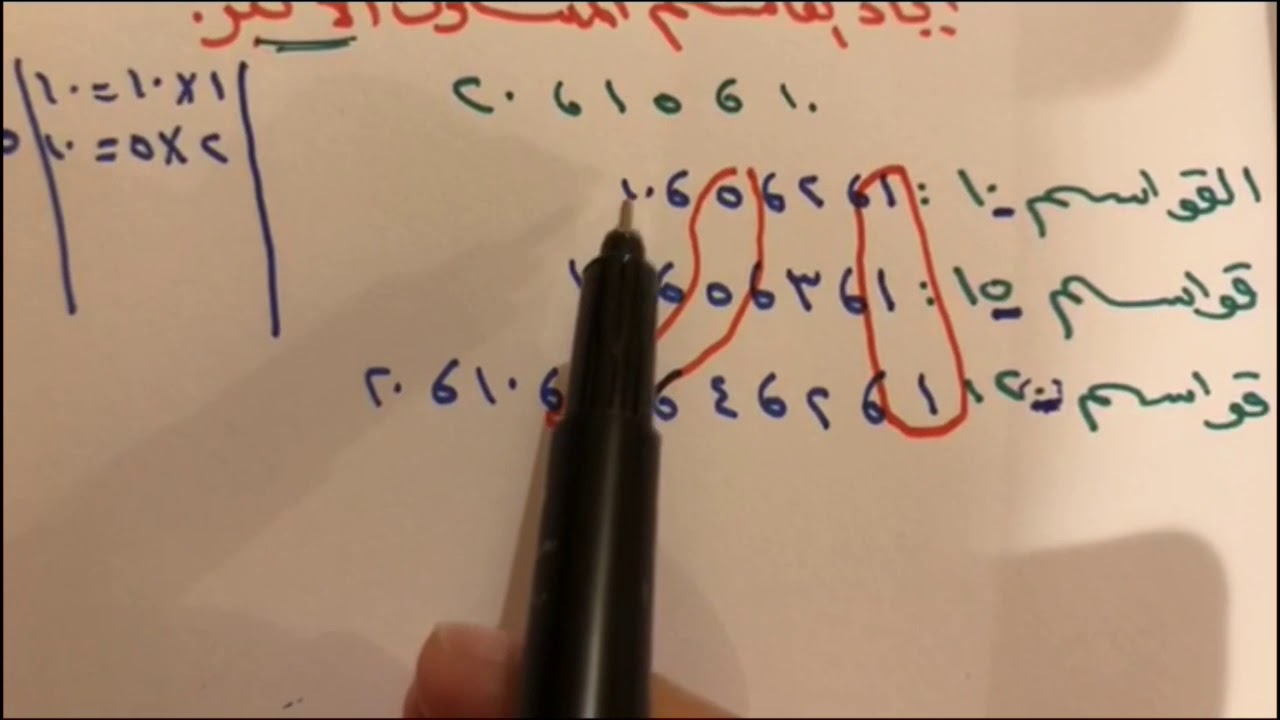 إيجاد القاسم المشترك الأكبر.
١٠ ، ١٥ ، ٢٠
القواسم ١٠ : ١ ، ٢ ، ٥ ، ١٠
قواسم ١٥ : ١ ، ٣ ، ٥ ،
قواسم ٢٠ : ١ ، ٢ ، ٤ ، ، ١٠ ، ٢٠
١×١٠=١٠
٢×٥=١٠